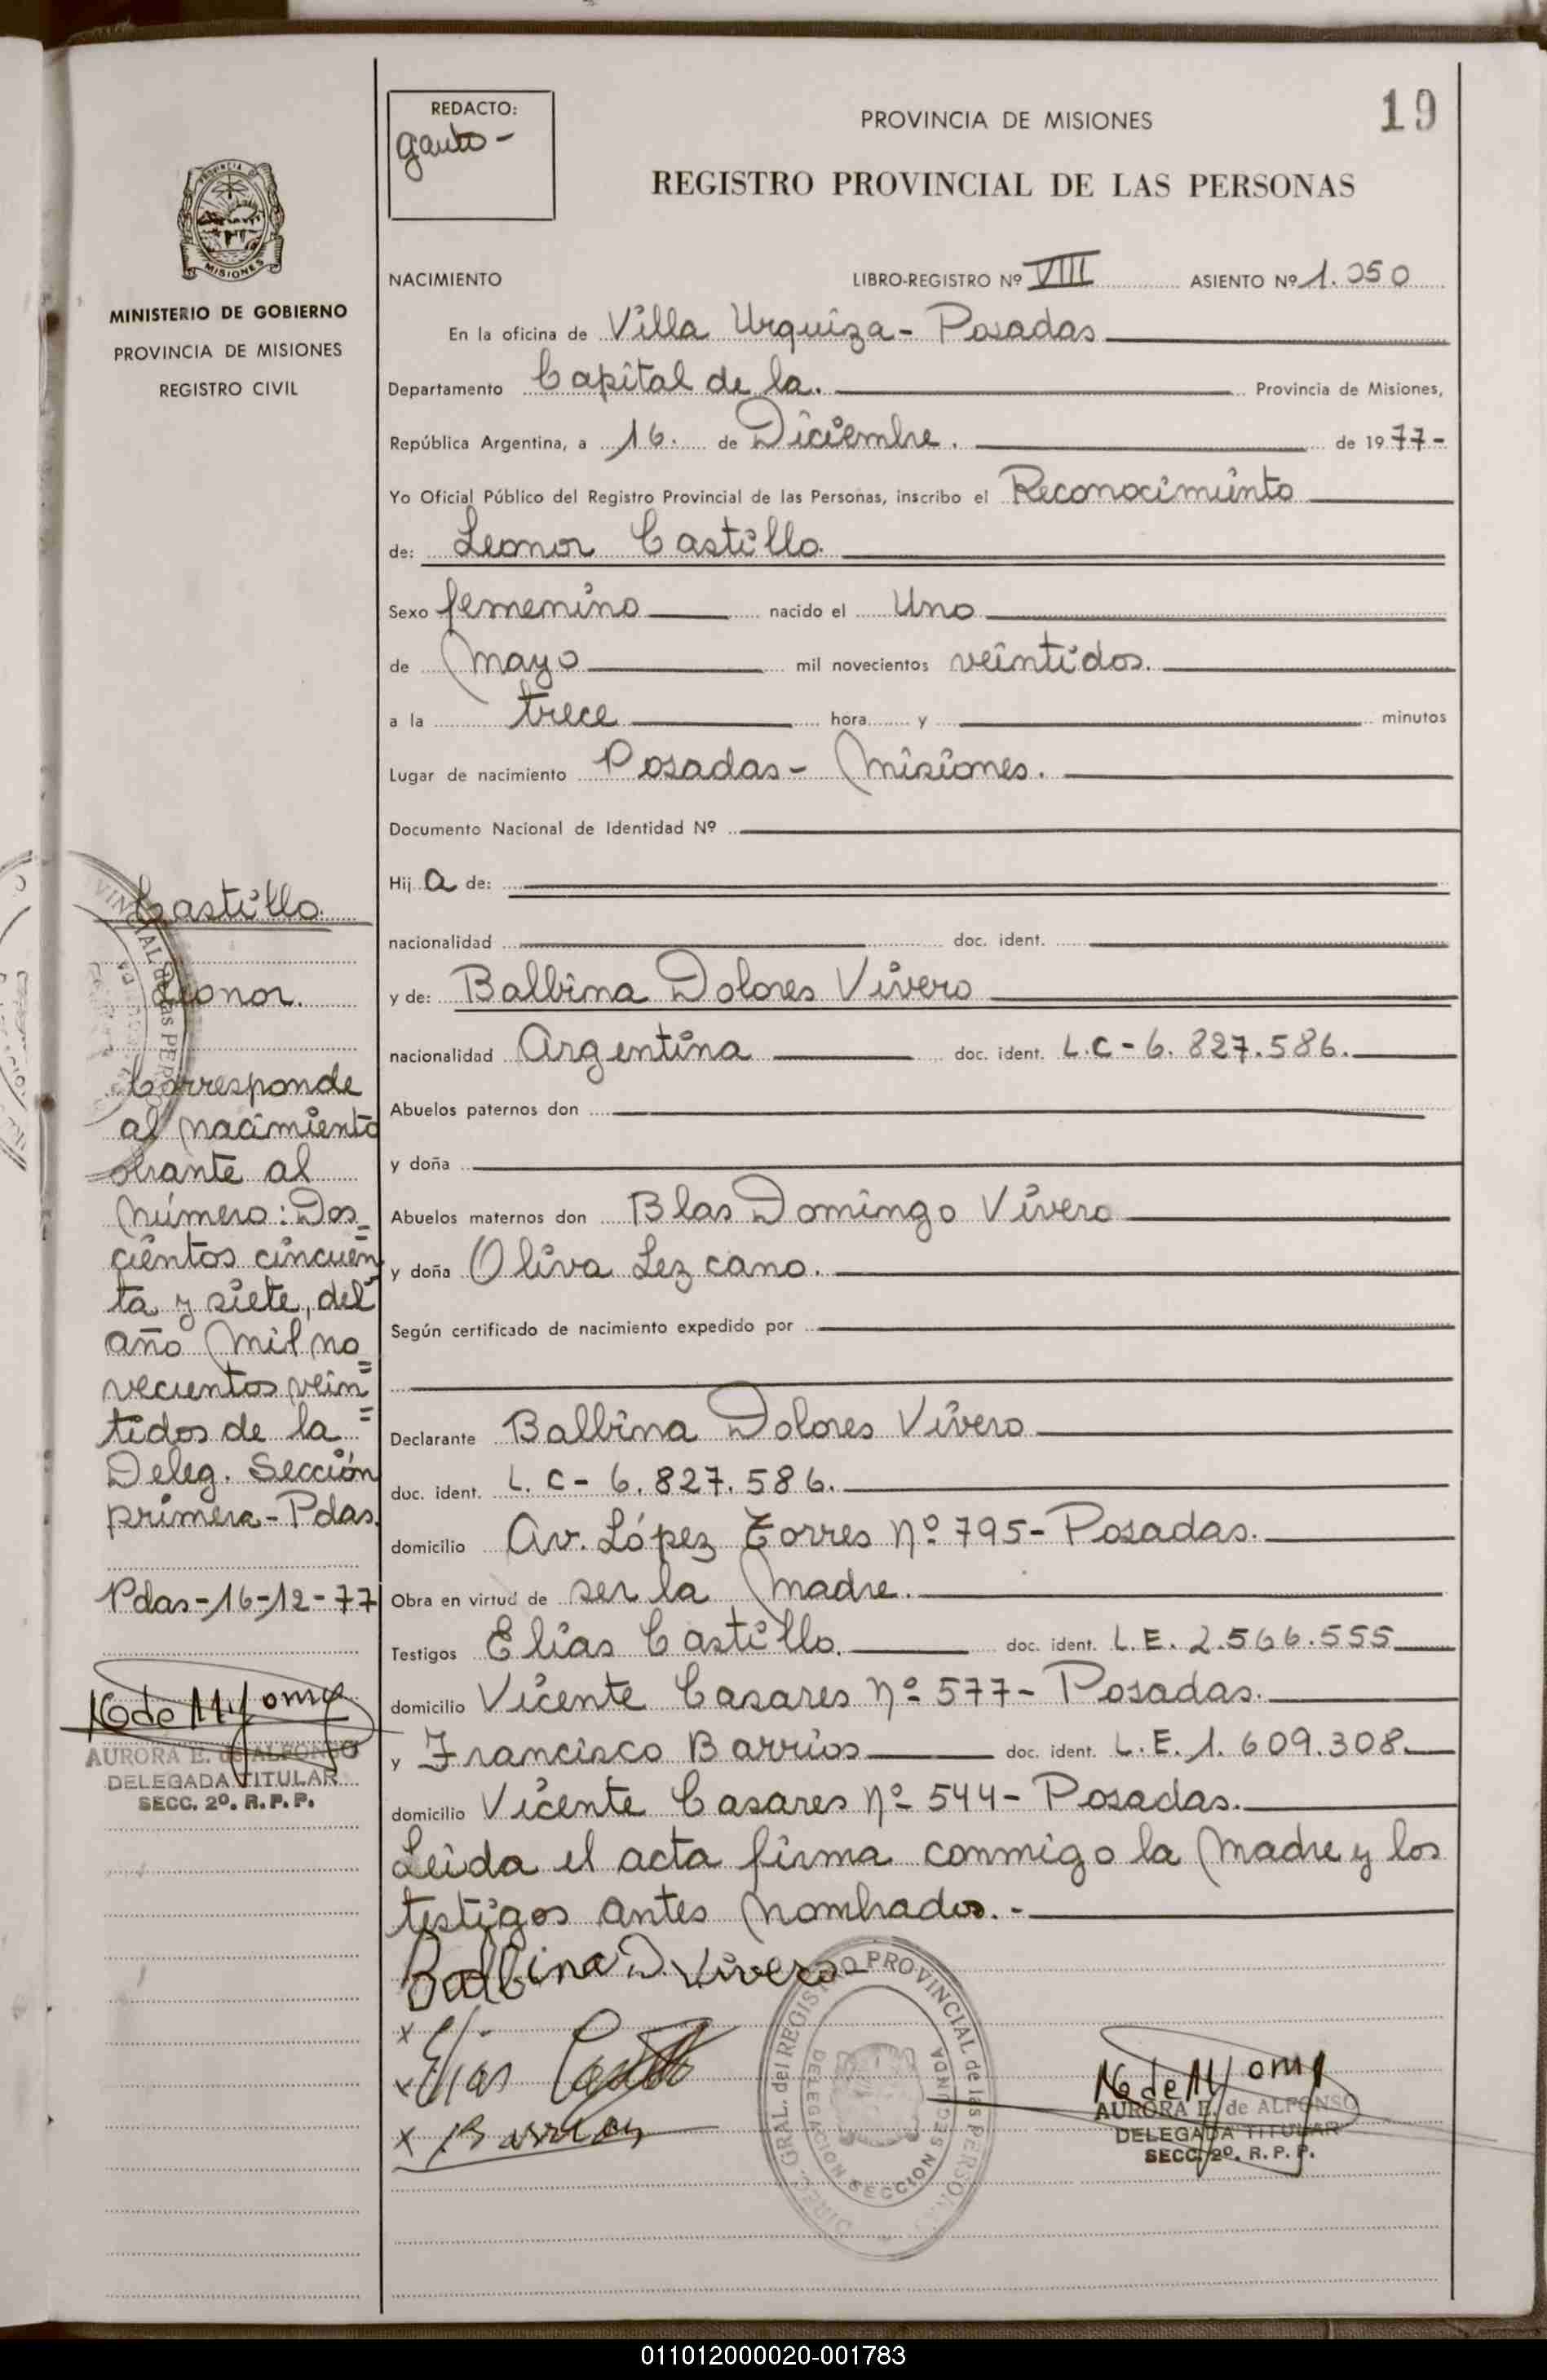 19
REDACTO:
gauto-
PROVINCIA DE MISIONES
REGISTRO PROVINCIAL DE LAS PERSONAS
MISIONES
MINISTERIO DE GOBIERNO
PROVINCIA DE MISIONES
REGISTRO CIVIL
NACIMIENTO LIBRO-REGISTRO Nº VIII ASIENTO Nº 1.050
En la oficina de Villa Urquiza - Posadas
Departamento Capital de la. Provincia de Misiones,
República Argentina, a 16. de Diciembre. de 1977-
Yo Oficial Público del Registro Provincial de las Personas, inscribo el Reconocimiento
de: Leonor Castillo.
Sexo femenino nacido el Uno
de Mayo mil novecientos veintidos.
a la trece hora y minutos
Lugar de nacimiento Posadas - Misiones.
Documento Nacional de Identidad Nº
Hij a de:
nacionalidad doc. ident.
y de: Balbina Dolores Vivero
nacionalidad Argentina doc. ident. L.C - 6.827.586.
Abuelos paternos don
y doña
Abuelos maternos don Blas Domingo Vivero
y doña Oliva Lezcano.
Según certificado de nacimiento expedido por
Declarante Balbina Dolores Vivero
doc. ident. L.C - 6.827.586.
domicilio Av. López Torres Nº 795 - Posadas.
Obra en virtud de ser la Madre.
Testigos Elias Castillo. doc. ident. L.E. 2.566.555
domicilio Vicente Casares Nº 577 - Posadas.
y Francisco Barrios doc. ident. L.E. 1.609.308.
domicilio Vicente Casares Nº 544 - Posadas.
Leida el acta firma conmigo la Madre y los
testigos antes nombrados.-
Balbina D. Vivero
x
x Elias Castillo
x Barrios
DIREC. GRAL. del REGISTRO PROVINCIAL de las PERSONAS
DELEGACION SECCION SEGUNDA
AURORA E. de ALFONSO
DELEGADA TITULAR
SECC. 2º. R. P. P.
Castillo.
Leonor.
Corresponde
al nacimiento
obrante al
Número: Dos_
cientos cincuen
ta y siete, del
año Mil no=
vecientos vein=
tidos de la
Deleg. Sección
primera - Pdas.
Pdas - 16-12-77
AURORA E. de ALFONSO
DELEGADA TITULAR
SECC. 2º. R. P. P.
011012000020-001783